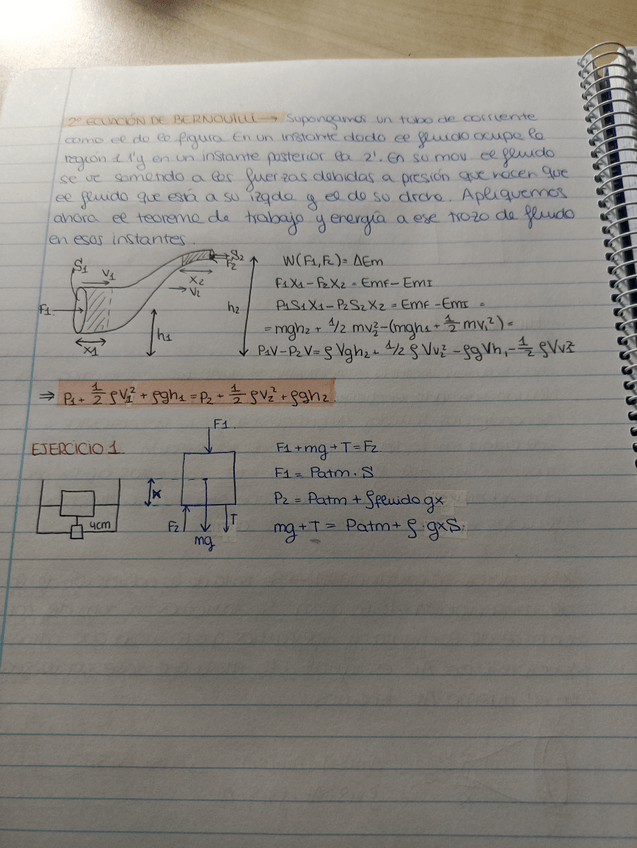 2º ECUACIÓN DE BERNOUILLI → Supongamos un tubo de corriente
como el de la figura. En un instante dado el fluido ocupa la
región 1 1' y en un instante posterior la 2'. En su mov. el fluido
se ve sometido a las fuerzas debidas a presión que hacen que
el fluido que está a su izqda y el de su dcha. Apliquemos
ahora el teorema de trabajo y energía a ese trozo de fluido
en esos instantes.
S1 V1 S2 F2
F1 X2 V2 h2
h1
X1
W(F1,F2) = ΔEm
F1X1 - F2X2 = EmF - EmI
P1S1X1 - P2S2X2 = EmF - EmI =
= mgh2 + 1/2 mv2² - (mgh1 + 1/2 mv1²) =
P1V - P2V = ρVgh2 + 1/2 ρVv2² - ρgVh1 - 1/2 ρVv1²
⇒ P1 + 1/2 ρV1² + ρgh1 = P2 + 1/2 ρV2² + ρgh2
EJERCICIO 1
4cm
F1
x
F2 mg T
F1 + mg + T = F2
F1 = Patm · S
P2 = Patm + ρfluido gx
mg + T = Patm + ρ · gxS